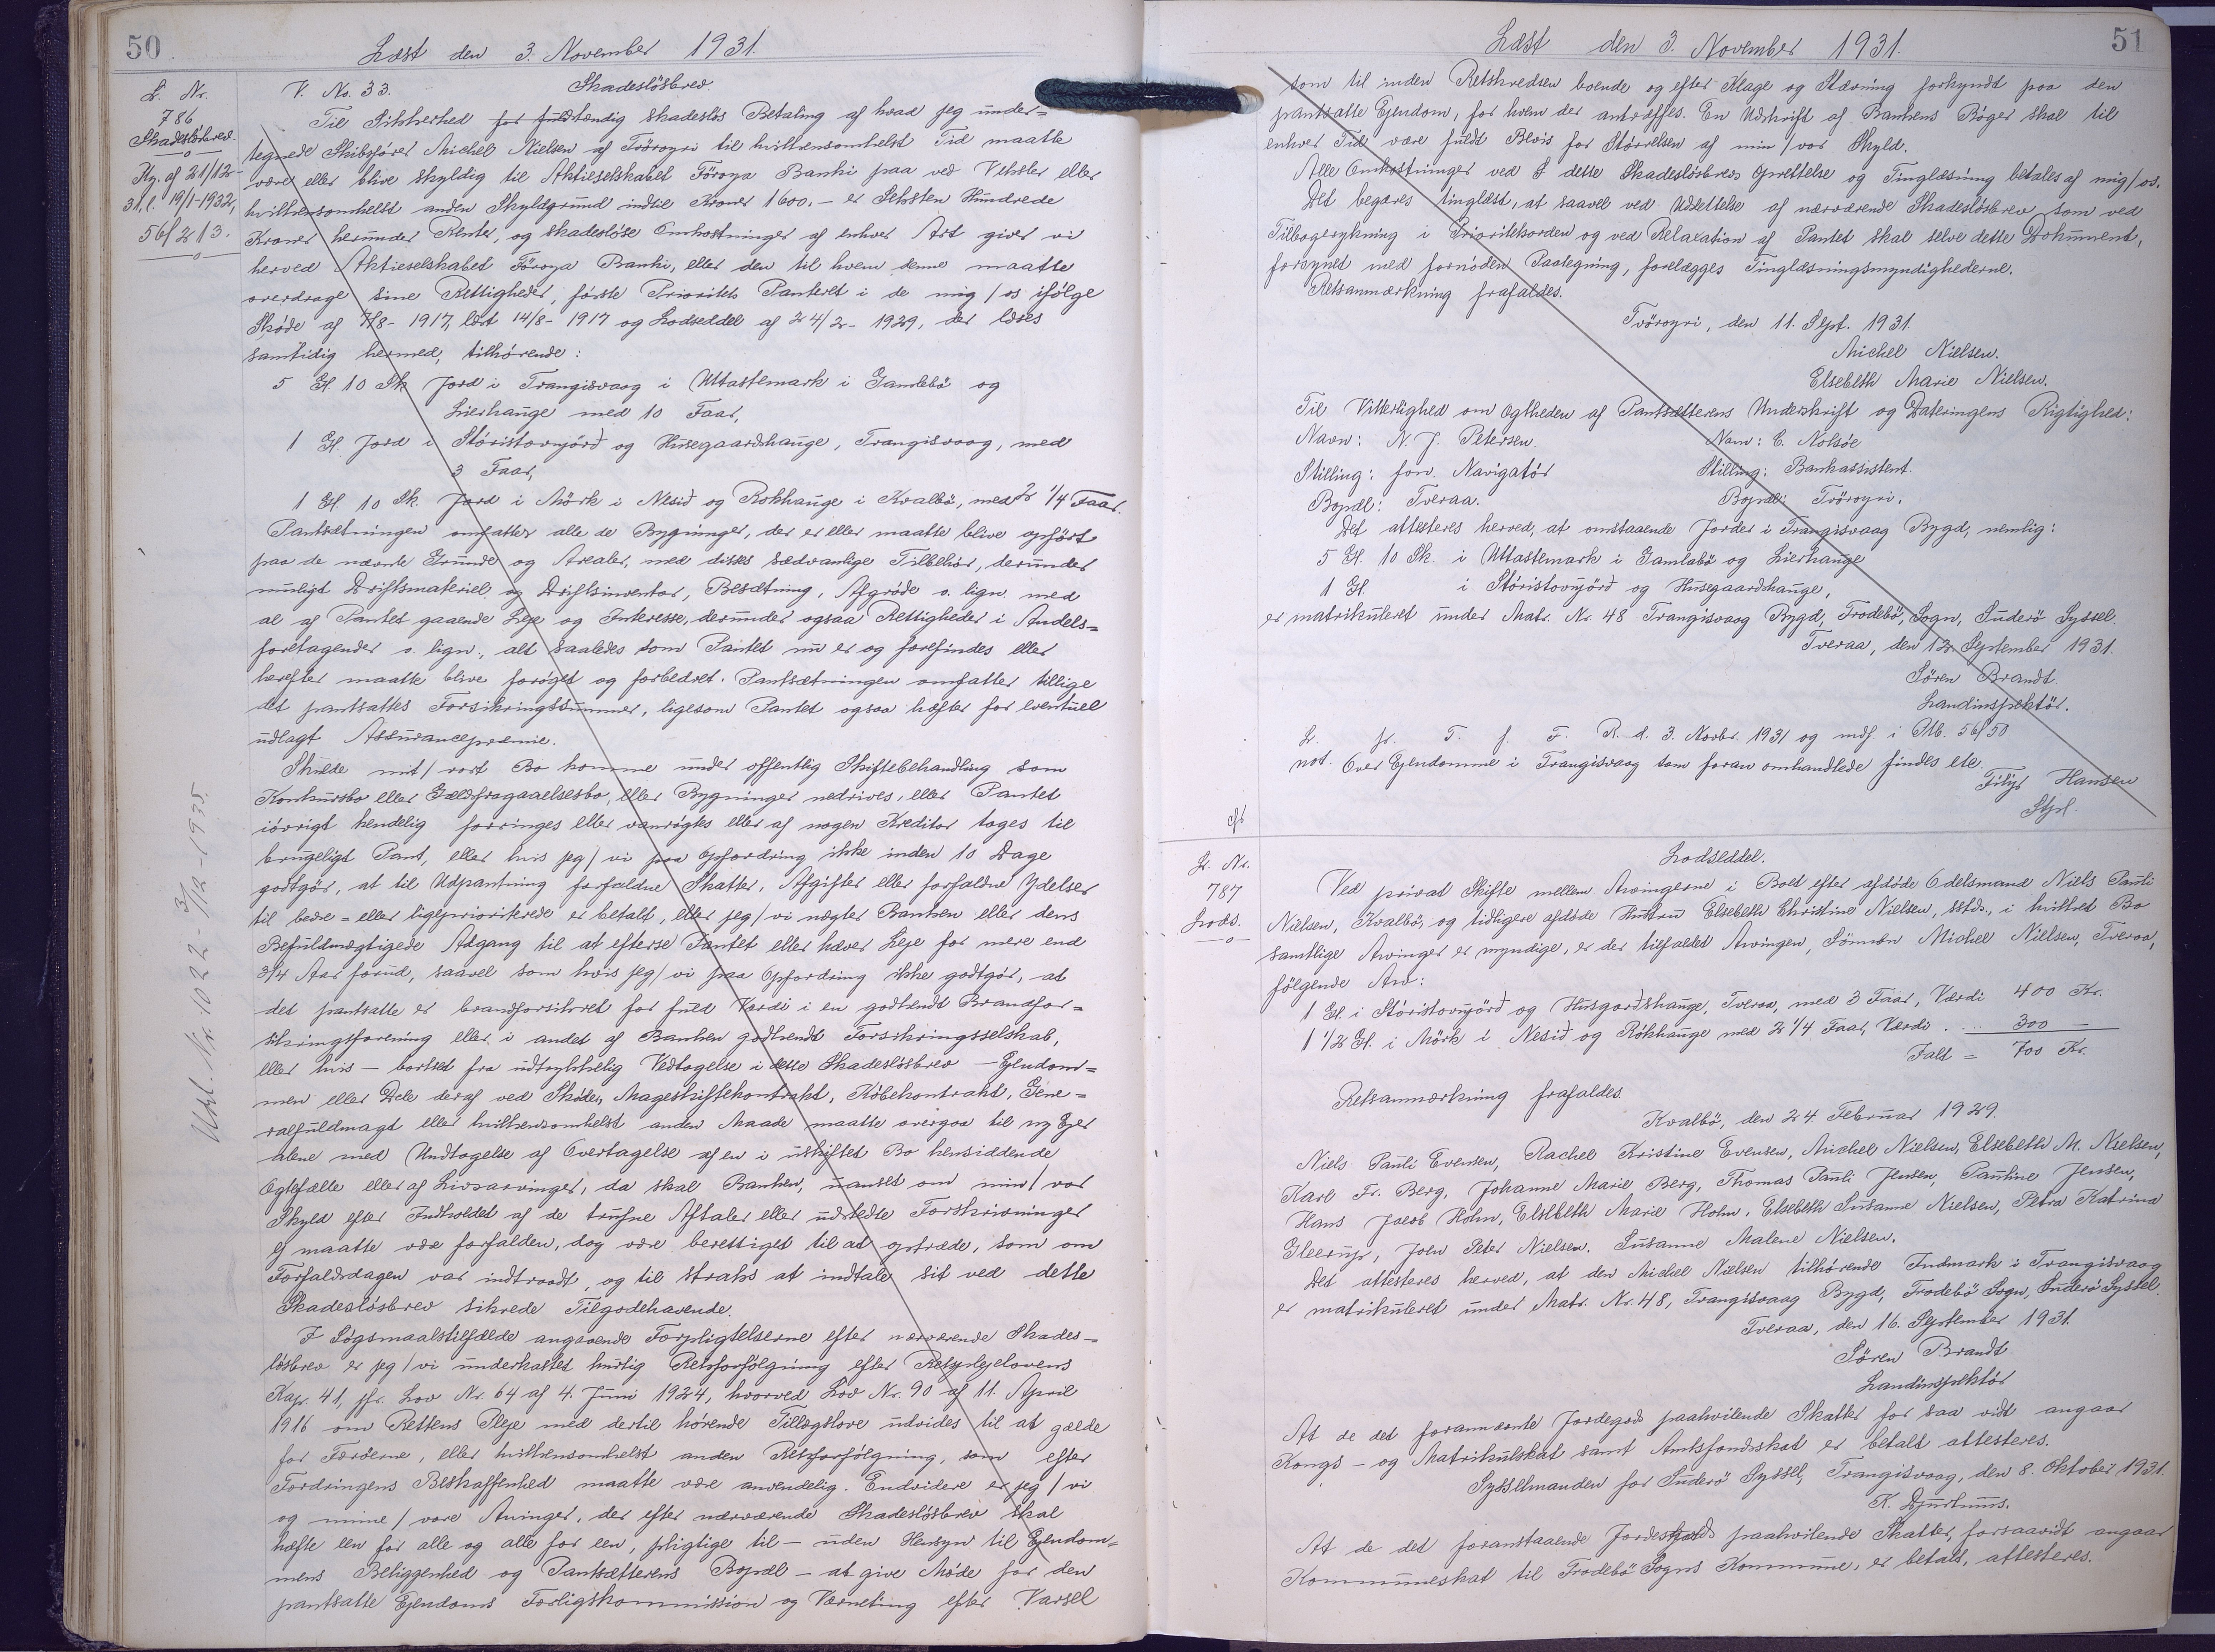 50
Læst den 3. November 1931.
L. Nr.
786
Skadesløsbrev.
Kg. af 21/12-
31. l. 19/1-1932,
56/213.
V. No. 33. Skadesløsbrev.
Til Sikkerhed for fuldstændig skadesløs Betaling af hvad jeg under=
tegnede Skibsfører Michel Nielsen af Tvøroyri til hvilkensomhelst Tid maatte
være eller blive skyldig til Aktieselskabet Föroya Banki paa ved Veksler eller
hvilkensomhelst anden Skyldgrund indtil Kroner 1600.- er Seksten Hundrede
Kroner herunder Renter, og skadesløse Omkostninger af enhver Art giver vi
herved Aktieselskabet Föroya Banki, eller den til hvem denne maatte
overdrage sine Rettigheder, første Prioritets Panteret i de mig/os ifølge
Skøde af 7/8-1917, læst 14/8-1917 og Lodseddel af 24/2-1929, der læses
samtidig hermed, tilhørende:
5 Gl 10 Sk Jord i Trangisvaag i Uttastemark i Gamlebö og
Lierhauge med 10 Faar,
1 Gl. Jord i Stóristovujörð og Husegaardshauge, Trangisvaag, med
3 Faar,
1 Gl. 10 Sk. Jord i Mörk i Nesið og Rokhauge i Kvalbö, med 2 1/4 Faar.
Pantsætningen omfatter alle de Bygninger, der er eller maatte blive opført
paa de nævnte Grunde og Arealer, med disses sædvanlige Tilbehør, derunder
muligt Driftsmateriel og Driftsinventar, Besætning, Afgrøde o. lign. med
al af Pantet gaaende Leje og Interesse, derunder ogsaa Rettigheder i Andels=
foretagender o. lign., alt saaledes som Pantet nu er og forefindes eller
herefter maatte blive forøget og forbedret. Pantsætningen omfatter tillige
det pantsattes Forsikringssummer, ligesom Pantet ogsaa hæfter for eventuel
udlagt Assurancepræmie.
Skulde mit/vort Bo komme under offentlig Skiftebehandling som
Konkursbo eller Gældsfragaaelsesbo, eller Bygninger nedrives, eller Pantet
iøvrigt kendelig forringes eller vanrøgtes eller af nogen Kreditor tages til
brugeligt Pant, eller hvis jeg/vi paa Opfordring ikke inden 10 Dage
godtgør, at til Udpantning forfaldne Skatter, Afgifter eller forfaldne Ydelser
til bedre- eller ligeprioriterede er betalt, eller jeg/vi nægter Banken eller dens
Befuldmægtigede Adgang til at efterse Pantet eller hæver Leje for mere end
3/4 Aar forud, saavel som hvis jeg/vi paa Opfordring ikke godtgør, at
det pantsatte er brandforsikret for fuld Værdi i en godkendt Brandfor=
sikringsforening eller i andet af Banken godkendt Forsikringsselskab,
eller hvis - bortset fra udtrykkelig Vedtagelse i dette Skadesløsbrev - Ejendom=
men eller Dele deraf ved Skøde, Mageskiftekontrakt, Købekontrakt, Gene=
ralfuldmagt eller hvilkensomhelst anden Maade maatte overgaa til ny Ejer
alene med Undtagelse af Overtagelse af en i uskiftet Bo hensiddende
Ægtefælle eller af Livsarvinger, da skal Banken, uanset om min/vor
Skyld efter Indholdet af de trufne Aftaler eller udstedte Forskrivninger
ej maatte være forfalden, dog være berettiget til at optræde, som om
Forfaldsdagen var indtraadt, og til straks at indtale sit ved dette
Skadesløsbrev sikrede Tilgodehavende.
I Søgsmaalstilfælde angaaende Forpligtelserne efter nærværende Skades-
løsbrev er jeg/vi underkastet hurtig Retsforfølgning efter Retsplejelovens
Kap. 41, jfr. Lov Nr. 64 af 4. Juni 1924, hvorved Lov Nr. 90 af 11. April
1916 om Rettens Pleje med dertil hørende Tillægslove udvides til at gælde
for Færøerne, eller hvilkensomhelst anden Retsforfølgning, som efter
Fordringens Beskaffenhed maatte være anvendelig. Endvidere er jeg/vi
og mine/vore Arvinger, der efter nærværende Skadesløsbrev skal
hæfte een for alle og alle for een, pligtige til - uden Hensyn til Ejendom=
mens Beliggenhed og Pantsætterens Bopæl - at give Møde for den
pantsatte Ejendoms Forligskommission og Værneting efter Varsel
Udsl. Nr. 1022 - 3/12-1935.
51
Læst den 3. November 1931.
som til inden Retskredsen boende og efter Klage og Stævning forkyndt paa den
pantsatte Ejendom, for hvem der antræffes. En Udskrift af Bankens Bøger skal til
enhver Tid være fuldt Bevis for Størrelsen af min/vor Skyld.
Alle Omkostninger ved dette Skadesløsbrevs Oprettelse og Tinglæsning betales af mig/os.
Det begæres tinglæst, at saavel ved Udslettelse af nærværende Skadesløsbrev som ved
Tilbagerykning i Prioritetsorden og ved Relaxation af Pantet skal selve dette Dokument,
forsynet med fornøden Paategning, forelægges Tinglæsningsmyndighederne.
Retsanmærkning frafaldes.
Tvöroyri, den 11. Sept. 1931.
Michel Nielsen.
Elsebeth Marie Nielsen.
Til Vitterlighed om Ægtheden af Pantsætterens Underskrift og Dateringens Rigtighed:
Navn: N. J. Petersen. Navn: C. Nolsøe
Stilling: forv. Navigatør Stilling: Bankassistent.
Bopæl: Tveraa. Bopæl: Tvöroyri.
Det attesteres herved, at omstaaende Jorder i Trangisvaag Bygd, nemlig:
5 Gl. 10 Sk. i Uttastemark i Gamlabö og Lierhauge
1 Gl. i Stóristovujörð og Husegaardshauge,
er matrikuleret under Matr. Nr. 48 Trangisvaag Bygd, Frodebö Sogn, Suderö Syssel.
Tveraa, den 12. September 1931.
Søren Brandt.
Landinspektör.
L. fr. T. f. F. R. d. 3. Novbr. 1931 og indf. i Pb. 56/50
not. Over Ejendomme i Trangisvaag som foran omhandlede findes etc.
Filip Hansen
Stpl.
L. Nr.
787
Lods.
Lodseddel.
Ved privat Skifte mellem Arvingerne i Boet efter afdøde Odelsmand Niels Pauli
Nielsen, Kvalbö, og tidligere afdøde Hustru Elsebeth Christine Nielsen, sstds., i hvilket Bo
samtlige Arvinger er myndige, er der tilfaldet Arvingen, Sønnen Michel Nielsen, Tveraa,
følgende Arv:
1 Gl. i Stóristovujörð og Husgarðshauge, Tveraa, med 3 Faar, Værdi 400 Kr.
1 1/2 Gl. i Mörk i Nesið og Rókhauge med 2 1/4 Faar, Værdi . . . 300 —
Ialt = 700 Kr.
Retsanmærkning frafaldes.
Kvalbö, den 24. Februar 1929.
Niels Pauli Evensen, Rachel Kristine Evensen, Michel Nielsen, Elsebeth M. Nielsen,
Karl Fr. Berg, Johanne Marie Berg, Thomas Pauli Jensen, Pauline Jensen,
Hans Jacob Holm, Elsebeth Marie Holm, Elsebeth Susanne Nielsen, Petra Katrina
Gleerup, Joen Peter Nielsen. Susanne Malene Nielsen.
Det attesteres herved, at den Michel Nielsen tilhørende Indmark i Trangisvaag
er matrikuleret under Matr. Nr. 48, Trangisvaag Bygd, Frodebö Sogn, Suderö Syssel.
Tveraa, den 16. September 1931.
Søren Brandt
Landinspektör
At de det forannævnte Jordegods paahvilende Skatter for saa vidt angaar
Kongs- og Matrikulskat samt Amtsfondsskat er betalt attesteres.
Sysselmanden for Suderö Syssel, Trangisvaag, den 8. Oktober 1931.
K. Djurhuus.
At de det foranstaaende Jordegods paahvilende Skatter, forsaavidt angaar
Kommuneskat til Frodebö Sogns Kommune, er betalt, attesteres.